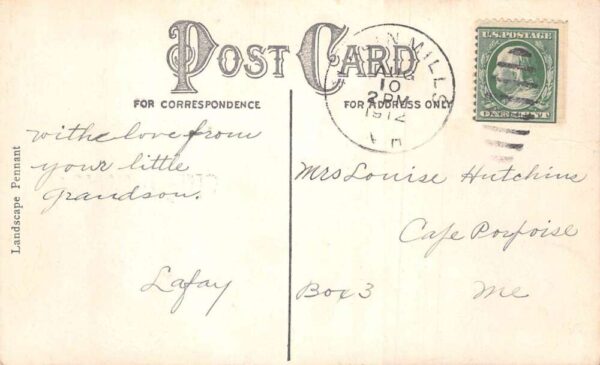 POST CARD
FOR CORRESPONDENCE
FOR ADDRESS ONLY
MILLS
AUG
10
2 PM
1912
U.S. POSTAGE
ONE CENT
Landscape Pennant
withe love from
your little
grandson.
Lafay
Mrs Louise Hutchins
Cape Porpoise
Box 3 Me